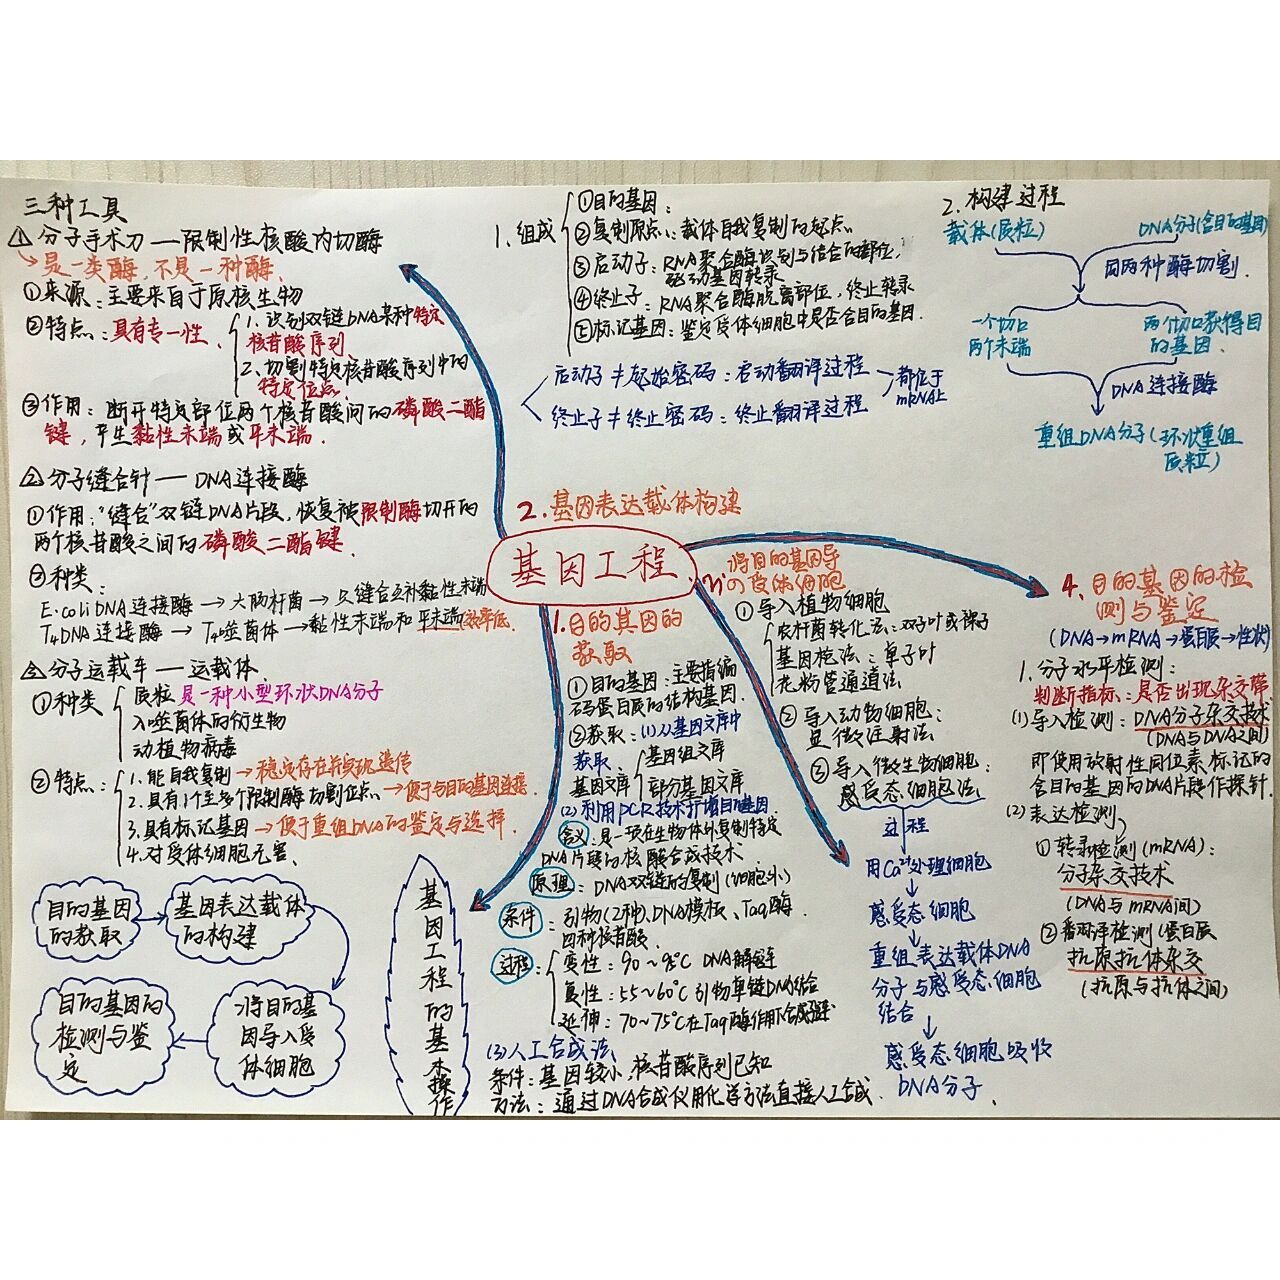 三种工具
① 分子手术刀——限制性核酸内切酶
→是一类酶,不是一种酶.
①来源:主要来自于原核生物
②特点:具有专一性.
1.识别双链DNA某种特定
核苷酸序列
2.切割特定核苷酸序列中的
特定位点.
③作用:断开特定部位两个核苷酸间的磷酸二酯
键,产生黏性末端或平末端.
② 分子缝合针——DNA连接酶
①作用:"缝合"双链DNA片段,恢复被限制酶切开的
两个核苷酸之间的磷酸二酯键.
②种类:
E·coliDNA连接酶→大肠杆菌→只缝合互补黏性末端
T4DNA连接酶→T4噬菌体→黏性末端和平末端(效率低.
③ 分子运载车——运载体.
①种类
质粒 是一种小型环状DNA分子
入噬菌体的衍生物
动植物病毒
②特点:
1.能自我复制→稳定存在并实现遗传
2.具有1个至多个限制酶切割位点→便于与目的基因连接.
3.具有标记基因→便于重组DNA的鉴定与选择.
4.对受体细胞无害.
目的基因
的获取
基因表达载体
的构建
将目的基
因导入受
体细胞
目的基因的
检测与鉴
定
基因工程的基本操作
基因工程
2.基因表达载体构建
1.组成
①目的基因:
②复制原点:载体自我复制的起点.
③启动子:RNA聚合酶识别与结合的部位,
驱动基因转录
④终止子:RNA聚合酶脱离部位,终止转录
⑤标记基因:鉴定受体细胞中是否含目的基因.
启动子≠起始密码:启动翻译过程
终止子≠终止密码:终止翻译过程
都位于
mRNA上
2.构建过程
载体(质粒)
DNA分子(含目的基因)
同两种酶切割.
一个切口
两个末端
两个切口获得目
的基因.
DNA连接酶
重组DNA分子(环状重组
质粒)
1.目的基因的
获取
①目的基因:主要指编
码蛋白质的结构基因.
②获取:(1)从基因文库中
获取.
基因文库
基因组文库
部分基因文库
(2)利用PCR技术扩增目的基因
含义:是一项在生物体外复制特定
DNA片段的核酸合成技术
原理:DNA双链的复制(细胞外)
条件:引物(2种).DNA模板、Taq酶
四种核苷酸.
过程:
变性:90~95℃ DNA解链
复性:55~60℃ 引物单链DNA结合
延伸:70~75℃在Taq酶作用下合成子链
(3)人工合成法
条件:基因较小,核苷酸序列已知
方法:通过DNA合成仪用化学方法直接人工合成.
将目的基因导
入受体细胞
①导入植物细胞
农杆菌转化法:双子叶或裸子
基因枪法:单子叶
花粉管通道法
②导入动物细胞:
显微注射法
③导入微生物细胞:
感受态细胞法
过程
用Ca²⁺处理细胞
感受态细胞
重组表达载体DNA
分子与感受态细胞
结合
感受态细胞吸收
DNA分子.
4.目的基因的检
测与鉴定
(DNA→mRNA→蛋白质→性状)
1.分子水平检测:
判断指标:是否出现杂交带
(1)导入检测:DNA分子杂交技术
(DNA与DNA之间)
即使用放射性同位素标记的
含目的基因的DNA片段作探针.
(2)表达检测
①转录检测(mRNA):
分子杂交技术
(DNA与mRNA间)
②翻译检测(蛋白质
抗原抗体杂交
(抗原与抗体之间)